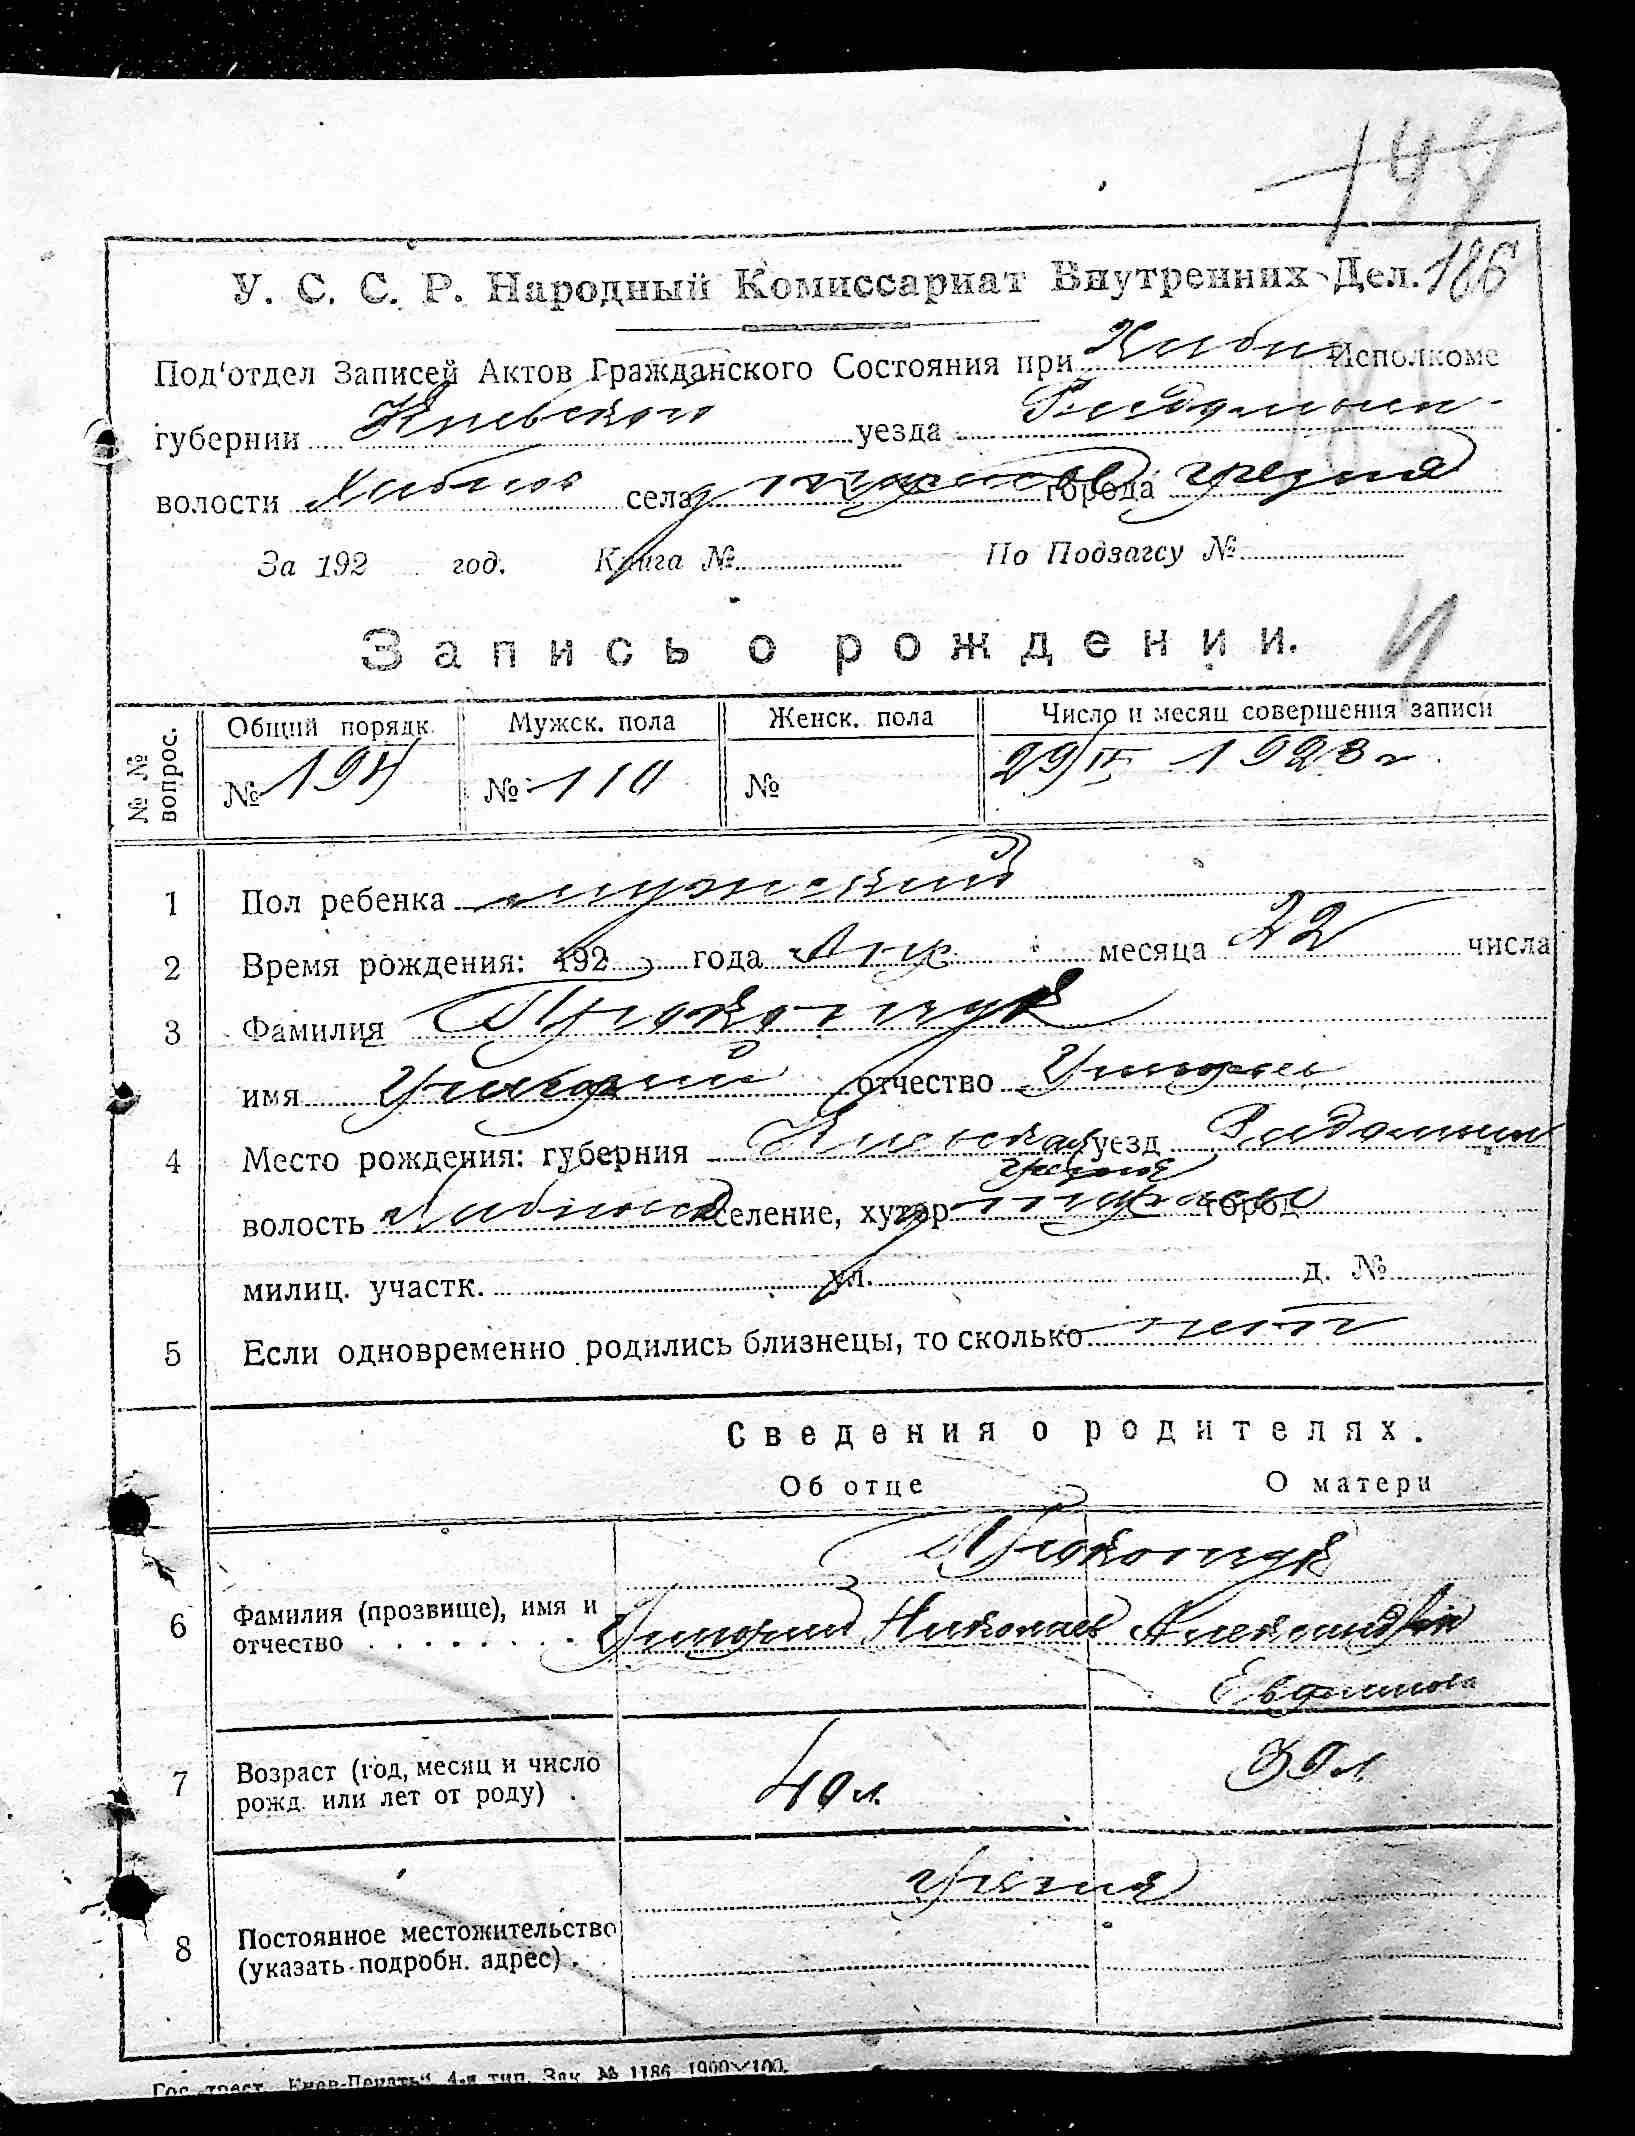 144
У. С. С. Р. Народный Комиссариат Внутренних Дел. 186
Под'отдел Записей Актов Гражданского Состояния при Исполкоме
губернии Киевской уезда Радомысл.
волости села города
За 192 год. Книга № По Подзагсу №
Запись о рождении.
№ № вопрос.
Общий порядк. Мужск. пола Женск. пола Число и месяц совершения записи
№ 194 № 110 № 29/IV 1923 г
1 Пол ребенка мужский
2 Время рождения: 192 года Апр месяца 22 числа
3 Фамилия Прокопчук
имя Григорий отчество
4 Место рождения: губерния Киевская уезд Радомысл
волость селение, хутор город
милиц. участк. ул. д. №
5 Если одновременно родились близнецы, то сколько нет
Сведения о родителях.
Об отце О матери
Прокопчук
6 Фамилия (прозвище), имя и
отчество Николаев Александра
7 Возраст (год, месяц и число
рожд. или лет от роду) 40 л. 30 л.
8 Постоянное местожительство
(указать подробн. адрес)
Гос. трест „Киев-Печать“ 4-я тип. Зак. № 1186 1900×100.